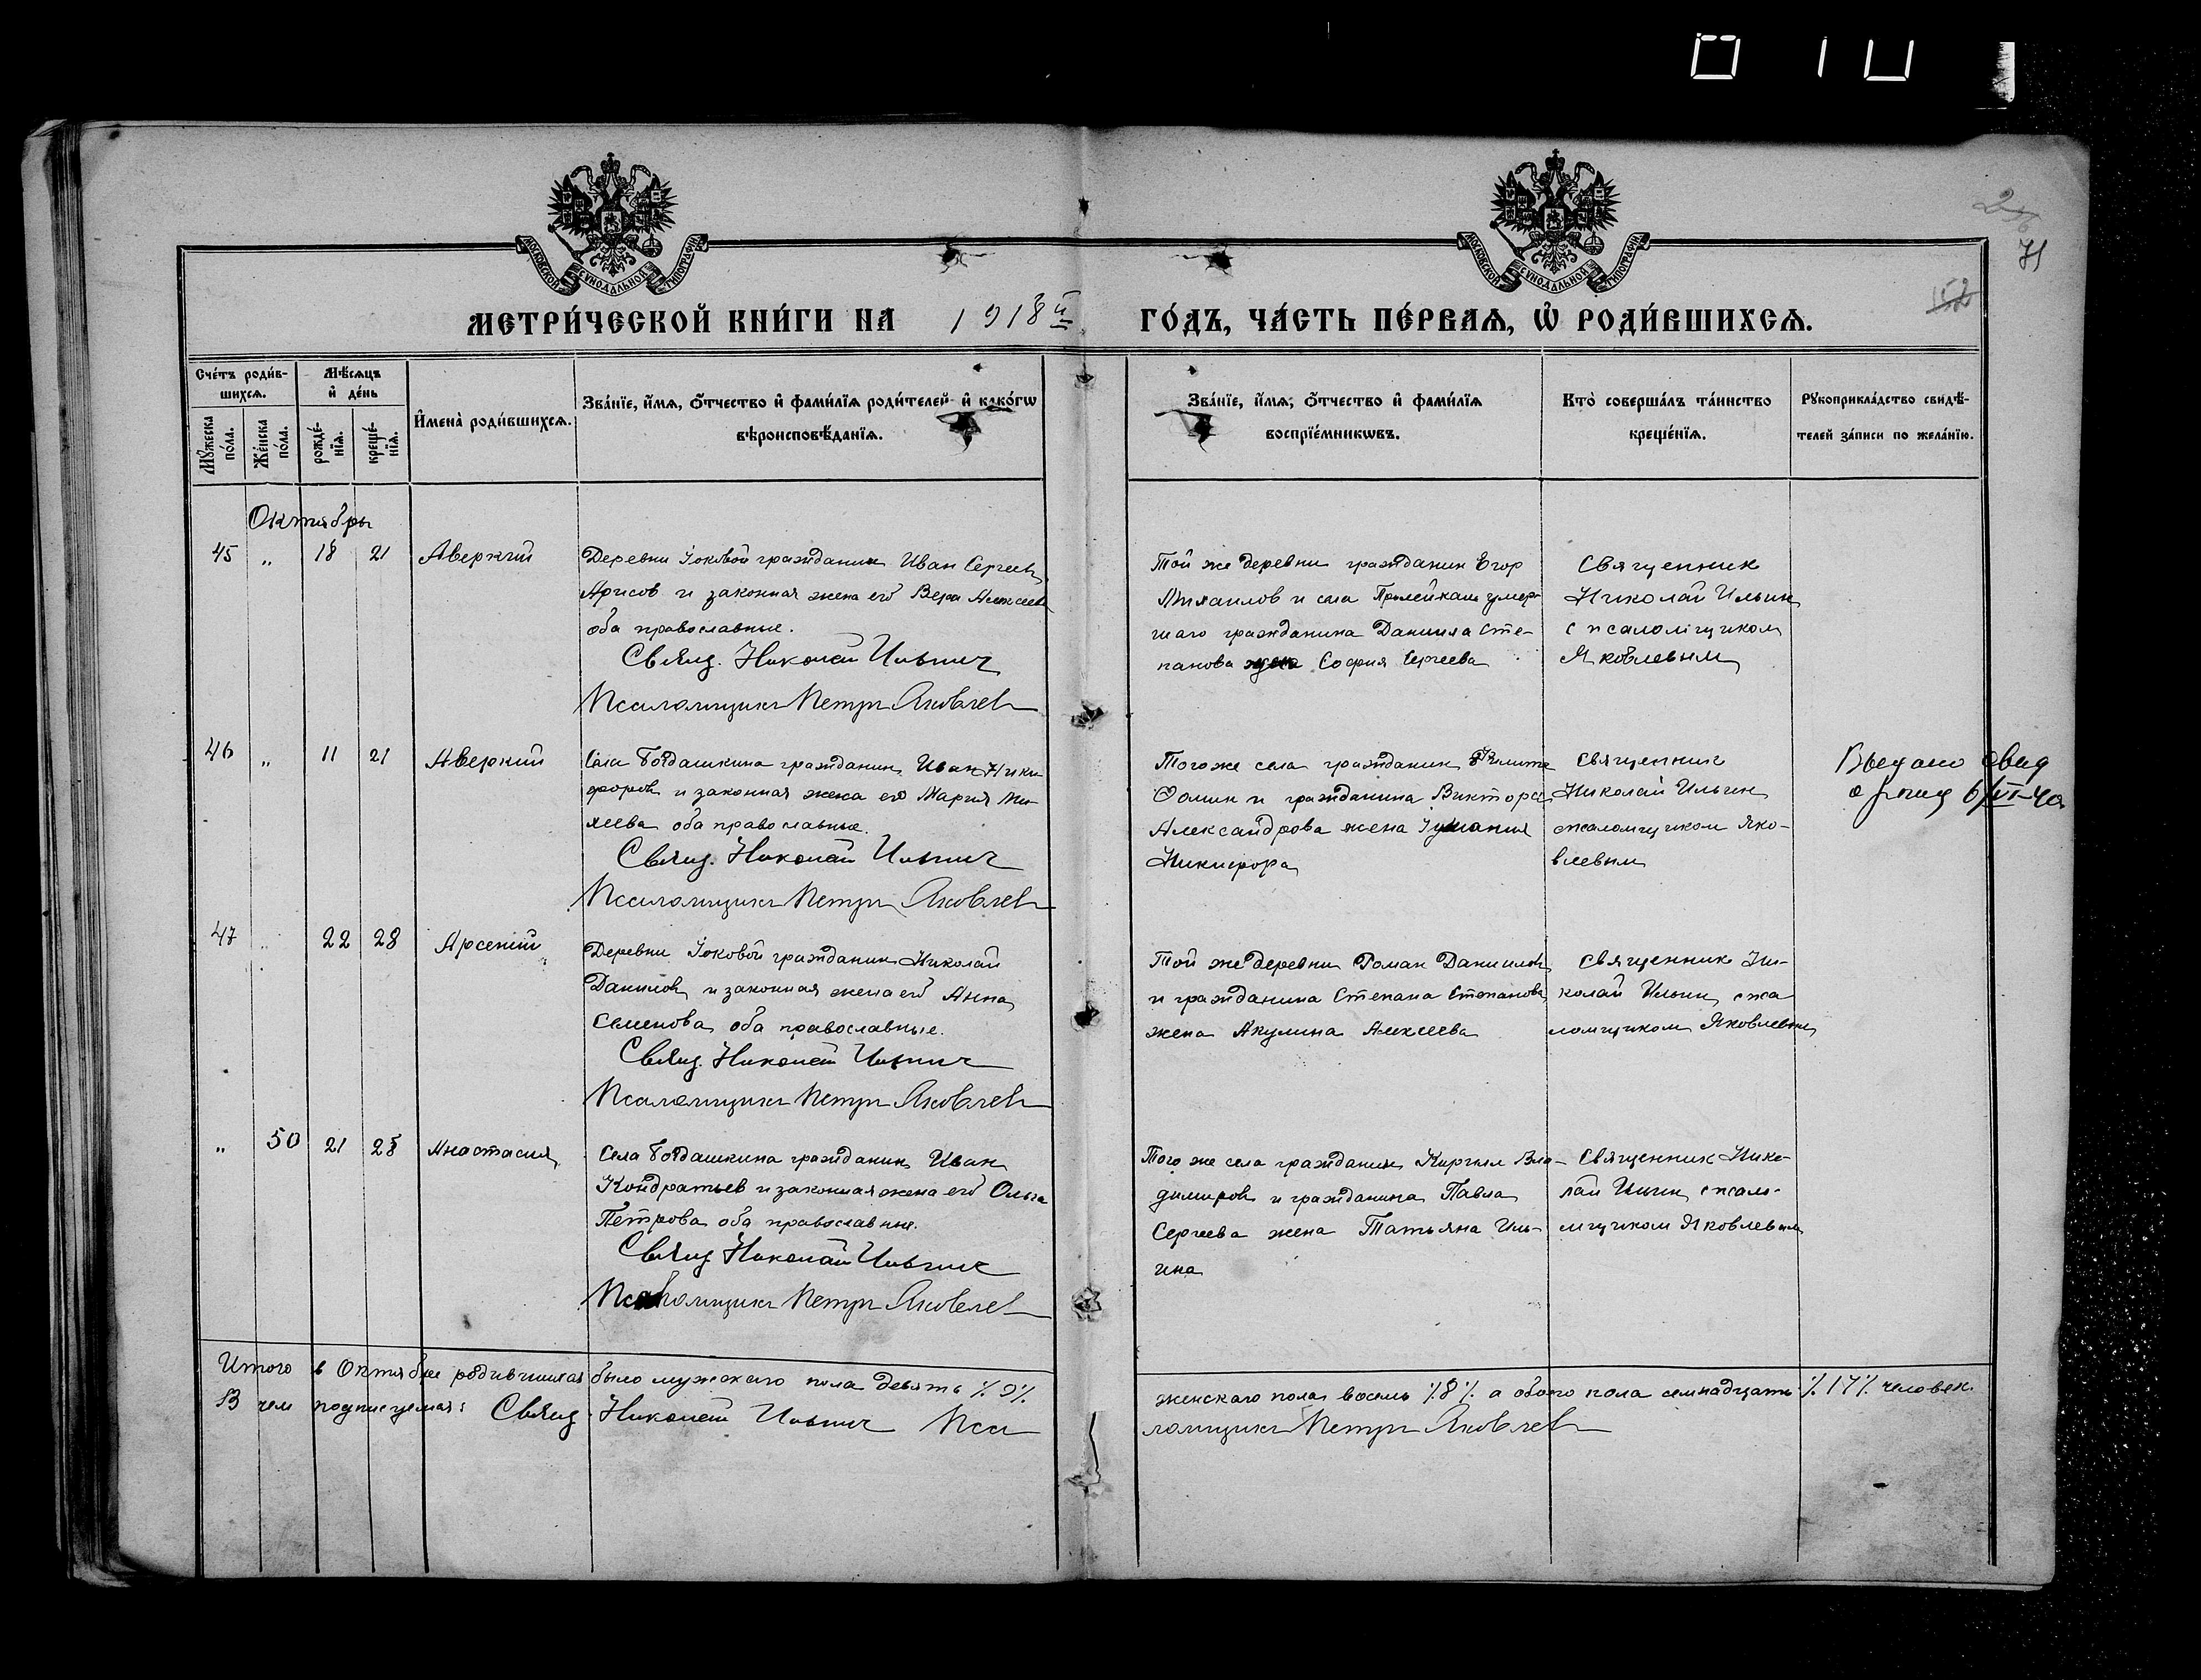 МОСКОВСКОЙ СѴНОДАЛЬНОЙ ТИПОГРАФІИ
МОСКОВСКОЙ СѴНОДАЛЬНОЙ ТИПОГРАФІИ
71
152
МЕТРИ́ЧЕСКОЙ КНИ́ГИ НА 1918й ГО́ДЪ, ЧА́СТЬ ПЕ́РВАЯ, Ѡ РОДИ́ВШИХСЯ.
Сче́тъ роди́в-
шихся.
Мѣ́сяцъ
и де́нь
Му́жеска по́ла.
Же́нска по́ла.
рожде́-нія.
креще́-нія.
И҆мена̀ роди́вшихся.
Зва́ніе, и҆́мя, о҆́тчество и҆ фами́лія роди́телей и҆ како́гѡ
вѣроисповѣ́данія.
Зва́ніе, и҆́мя, о҆́тчество и҆ фами́лія
воспріе́мникѡвъ.
Кто̀ соверша́лъ та́инство
креще́нія.
Рꙋкоприкла́дство свидѣ́-
телей за́писи по жела́нію.
Октябрь
45 " 18 21 Аверкий
Деревни Йоковой гражданин Иван Сергеев
Арисов и законная жена его Вера Алексеева
оба православные.
Свящ. Николай Ильин
Псаломщик Петр Яковлев
Той же деревни гражданин Егор
Михаилов и села умер-
шаго гражданина Даниила Сте-
панова жена София Сергеева
Священник
Николай Ильин
с псаломщиком
Яковлевым
46 " 11 21 Аверкий
Села Богдашкина гражданин Иван Ники-
форов и законная жена его Мария Ми-
хеева оба православные.
Свящ. Николай Ильин
Псаломщик Петр Яковлев
Того же села гражданин
Фомин и гражданина Виктора
Александрова жена
Никифора
Священник
Николай Ильин
псаломщиком Яко-
влевым
Выдано свид
о рожд 6/VI-40
47 " 22 28 Арсений
Деревни Йоковой гражданин Николай
Данилов и законная жена его Анна
Семенова оба православные.
Свящ. Николай Ильин
Псаломщик Петр Яковлев
Той же деревни Роман Даниилов
и гражданина Степана Степанова
жена Акулина Алексеева
Священник Ни-
колай Ильин с пса
ломщиком Яковлевым
" 50 21 28 Анастасия
Села Богдашкина гражданин Иван
Кондратьев и законная жена его Ольга
Петрова оба православные.
Свящ. Николай Ильин
Псаломщик Петр Яковлев
Того же села гражданин Кирилл Вла-
димиров и гражданина Павла
Сергеева жена Татьяна Иль-
ина
Священник Нико-
лай Ильин с псало-
мщиком Яковлевым
Итого в Октябре родившихся было мужскаго пола девять ٪9٪ женскаго пола восемь ٪8٪ а обоего пола семнадцать ٪17٪ человек.
В чем подписуемся: Свящ. Николай Ильин Пса ломщик Петр Яковлев